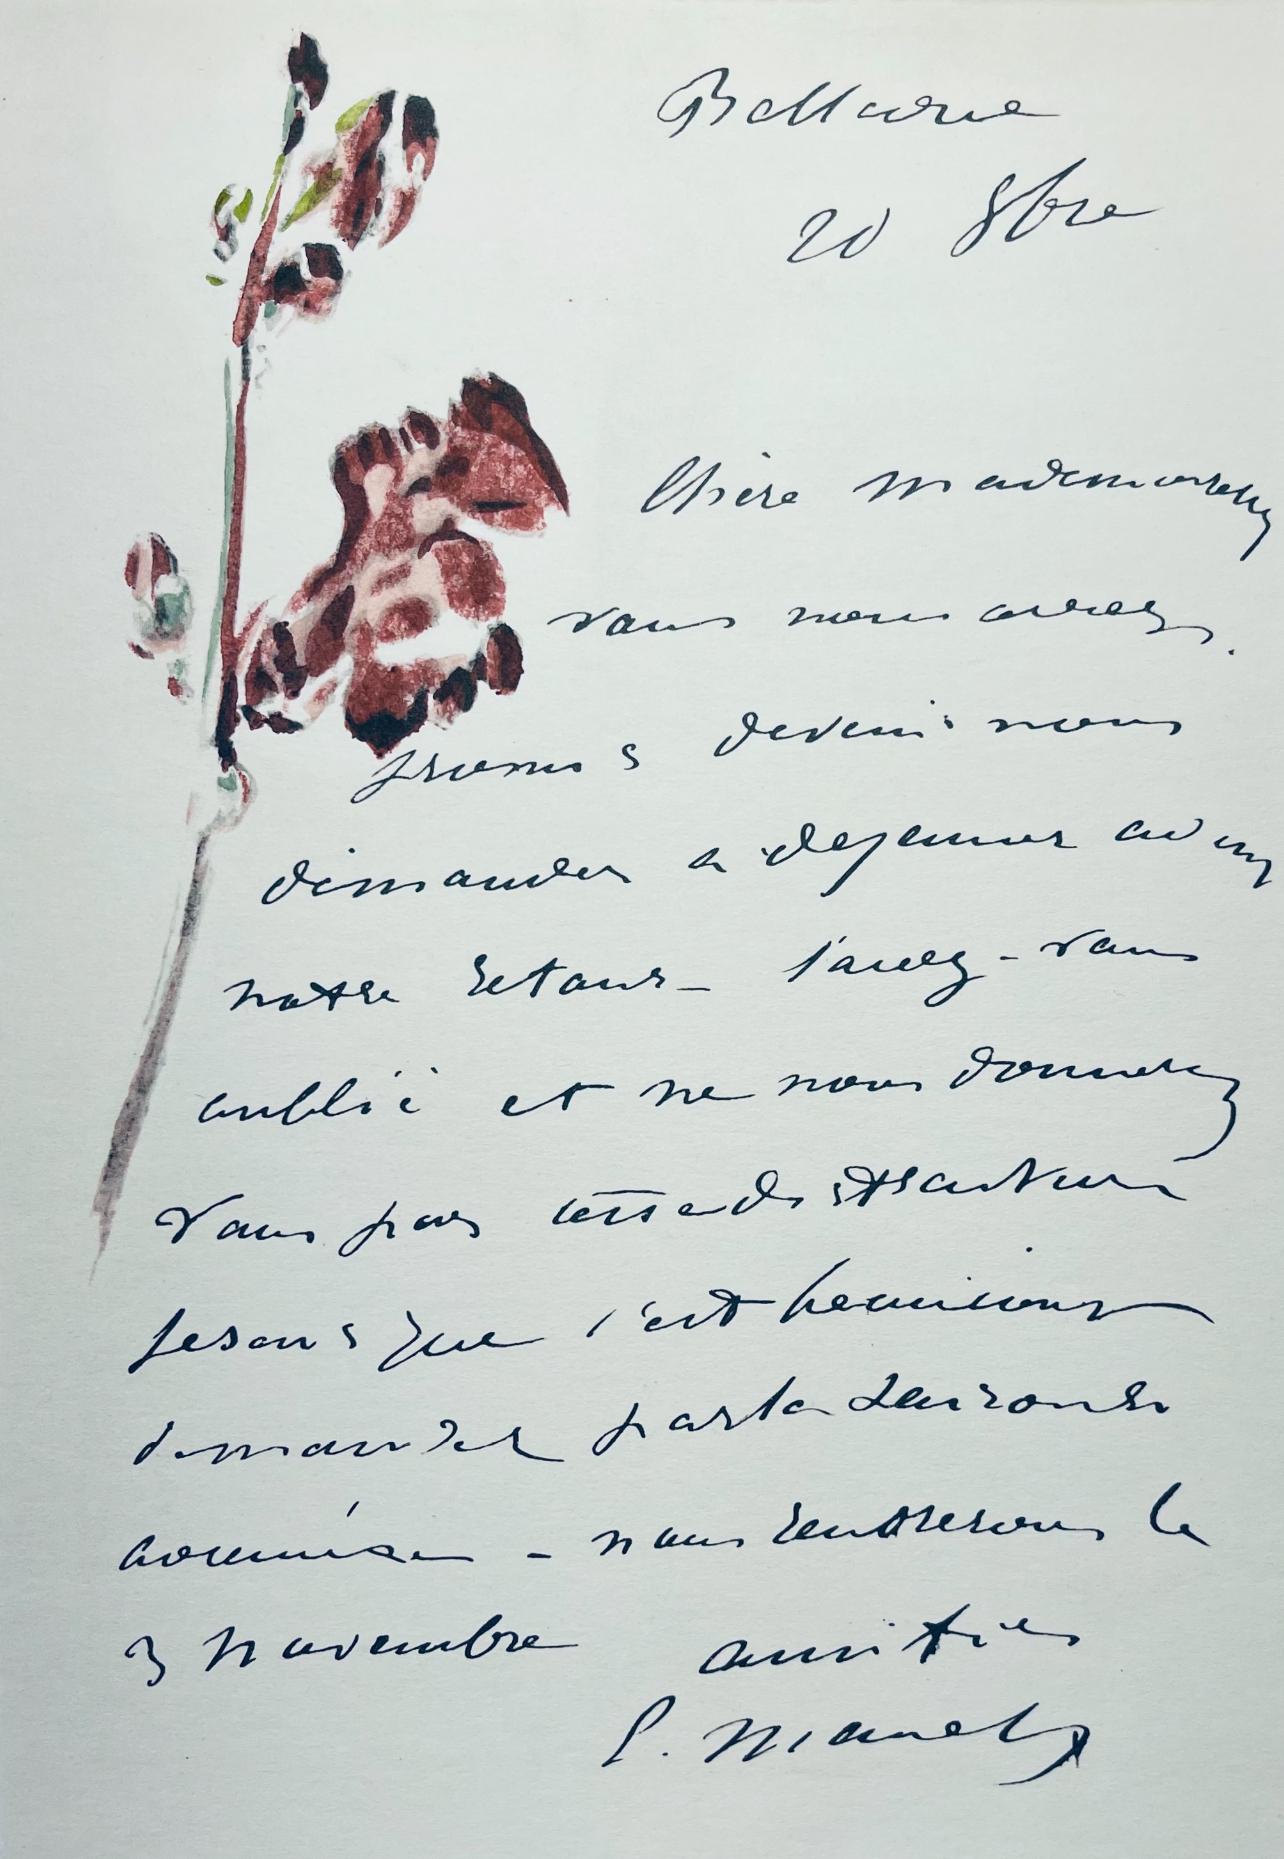 Bellevue
20 8bre
Chère mademoiselle
vous nous aviez
promis de venir nous
demander a dejeuner avant
notre retour - l'avez-vous
oublié et ne nous donnerez
vous pas cette distraction
je sais que c'est beaucoup
demander par la saison
avancée - nous rentrerons le
3 novembre amitiés
E. Manet